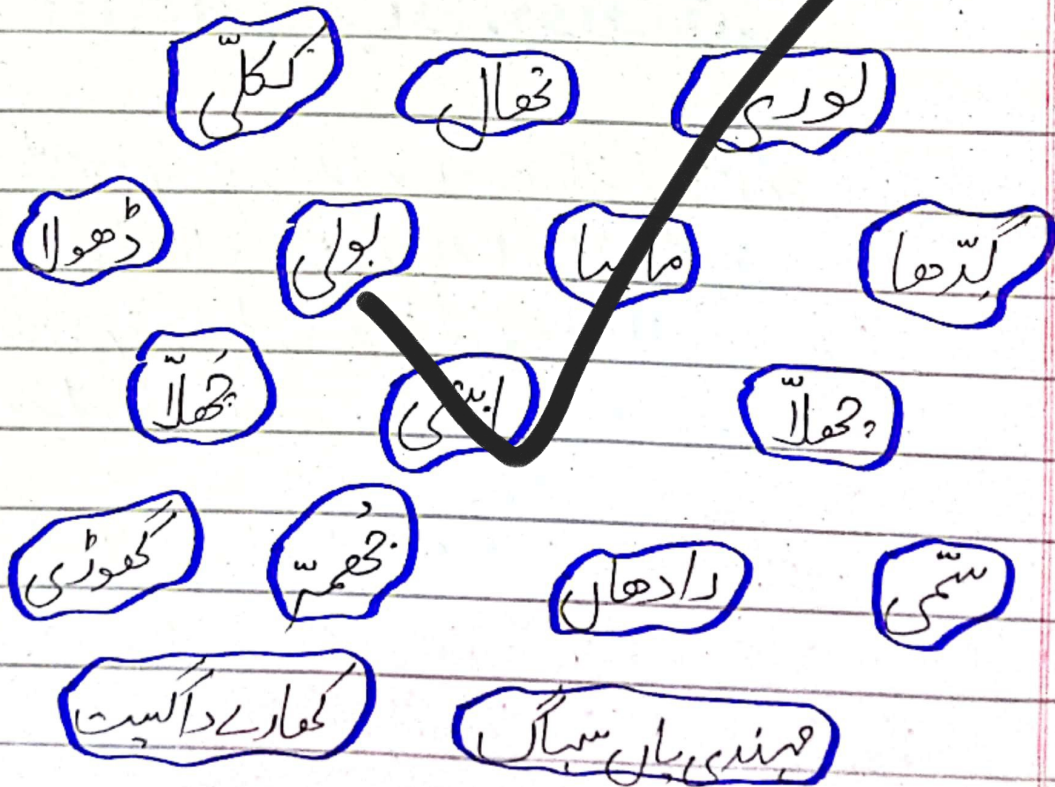 لوری تھال ککلّی
گِدّھا ماہیا بولی ڈھولا
چھلّا ابٹنی چُھلّا
سمّی دادھاں جُھمّر گھوڑی
مہندی یاں سہاگ کھارے دا گیت